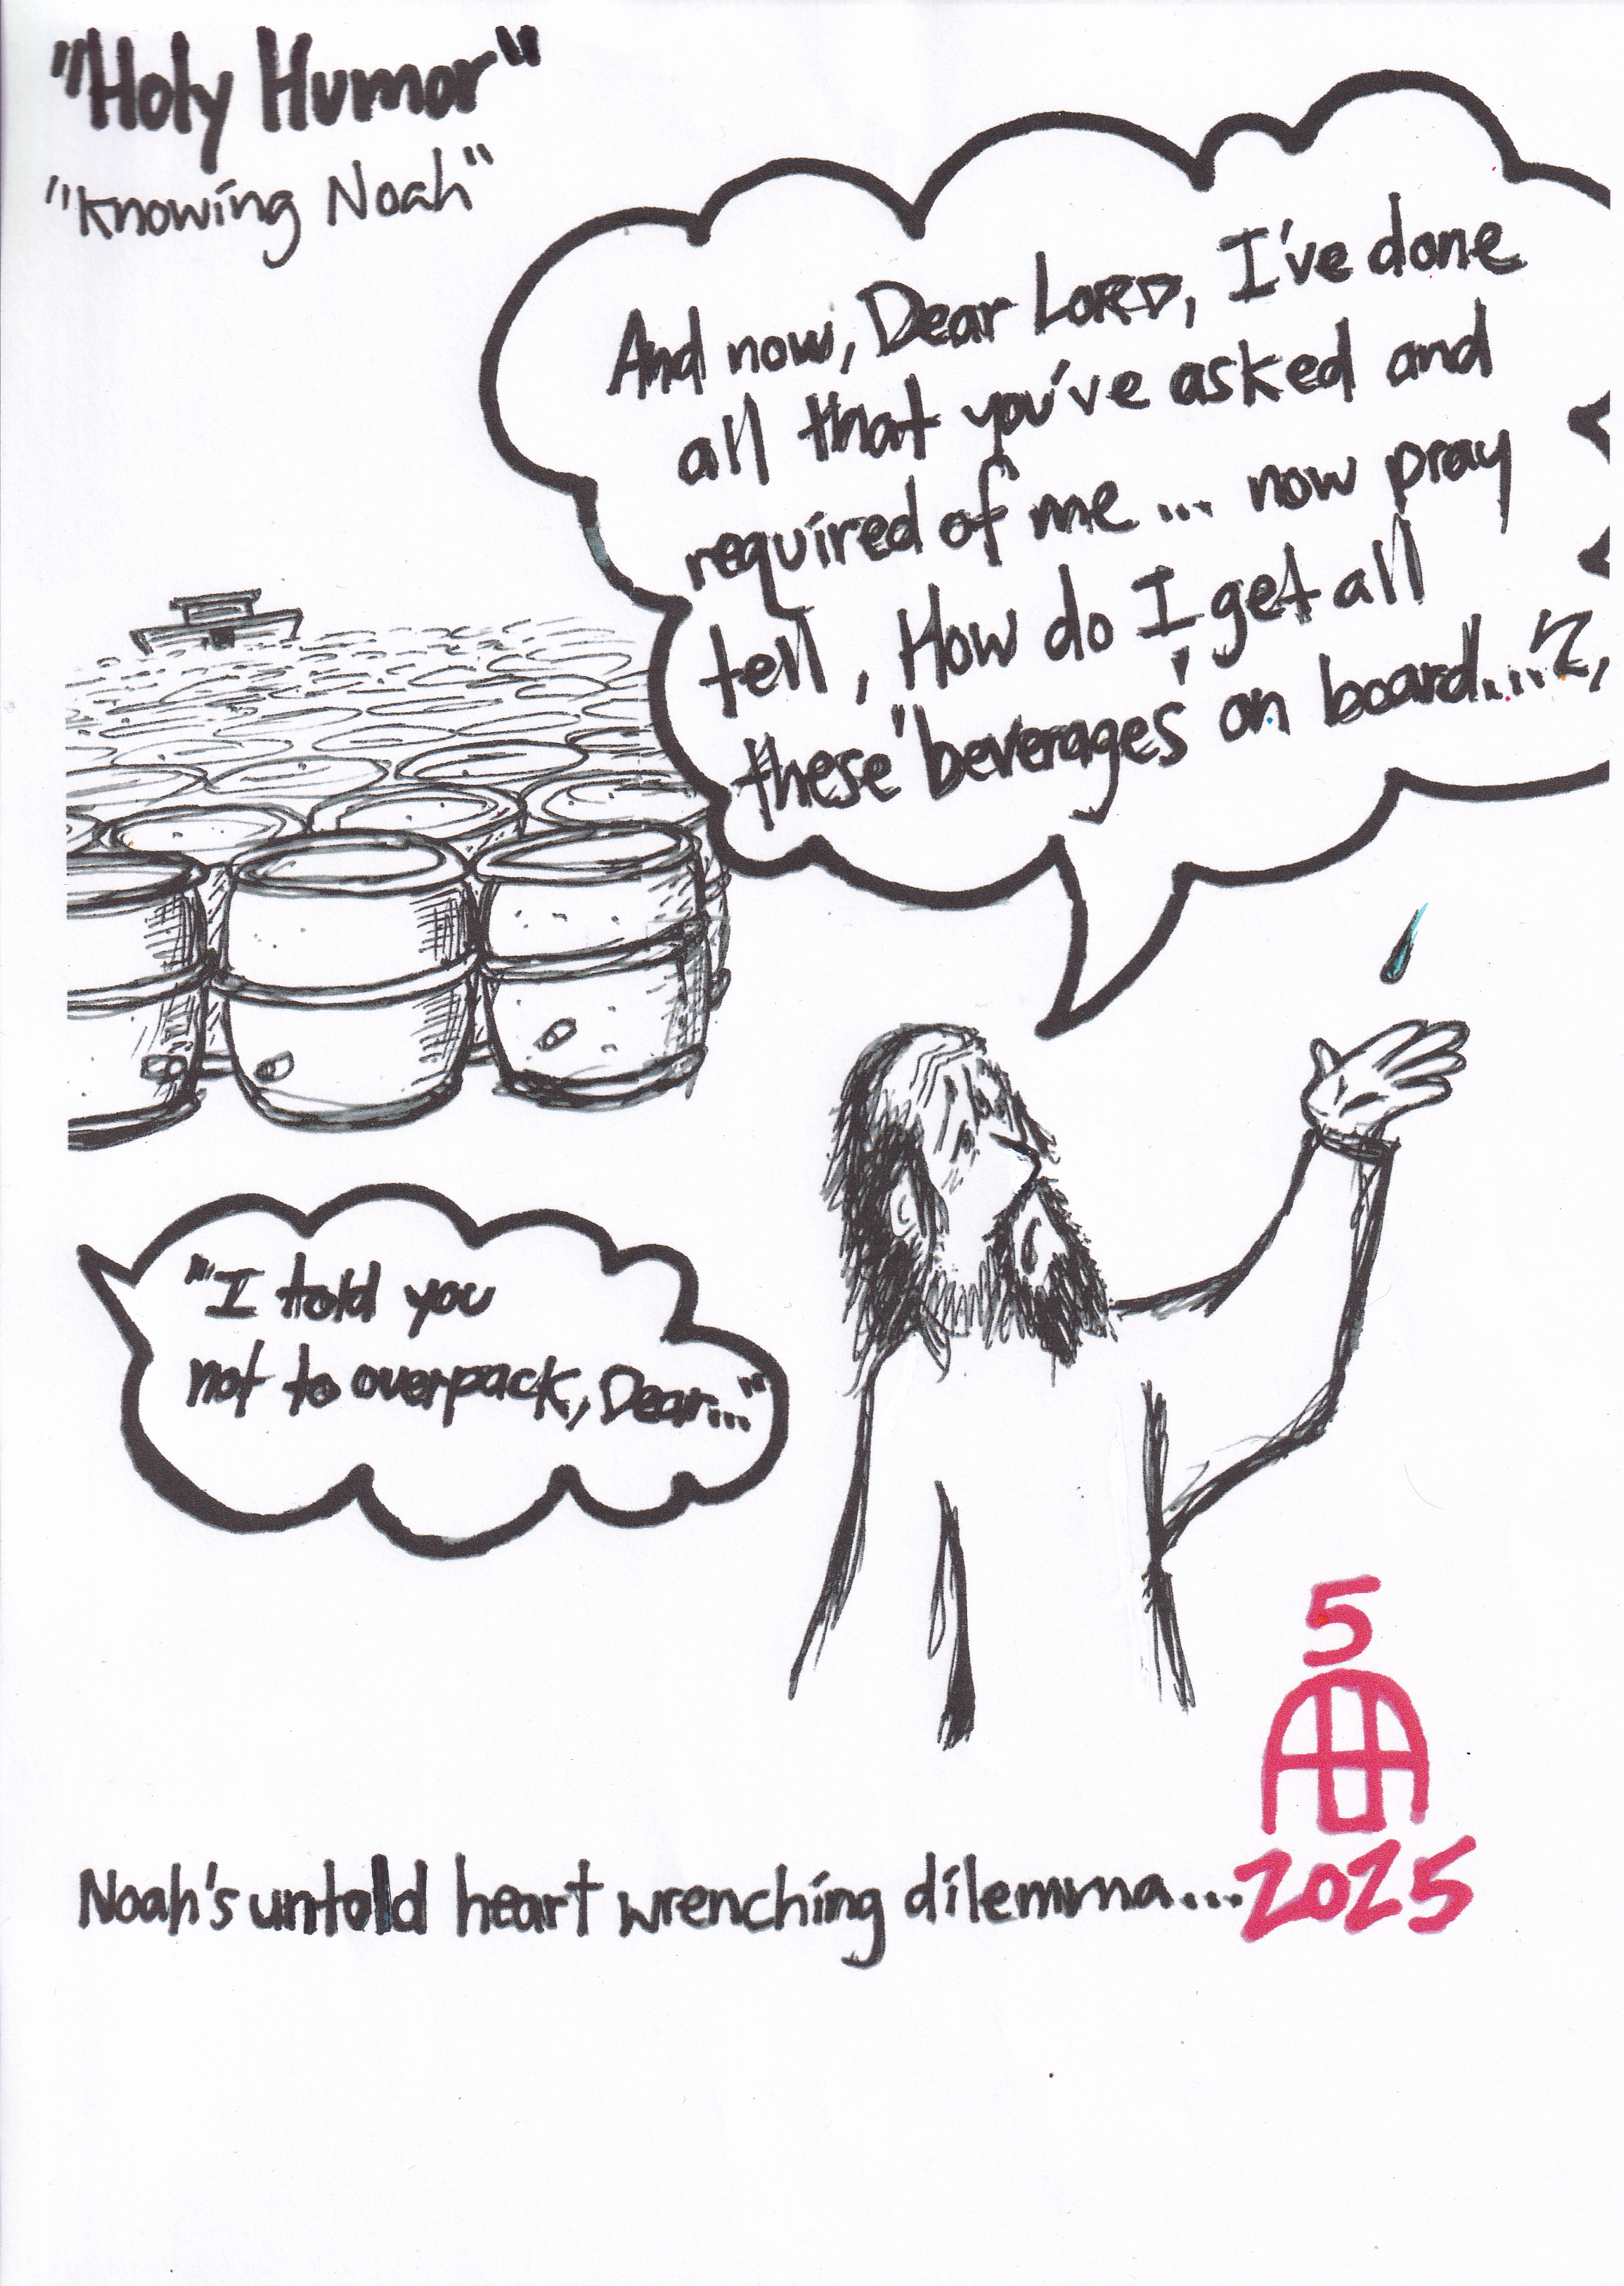 "Holy Humor"
"Knowing Noah"
And now, Dear LORD, I've done
all that you've asked and
required of me... now pray
tell, How do I get all
these "beverages" on board...?,
"I told you
not to overpack, Dear..."
5
2025
Noah's untold heart wrenching dilemma...